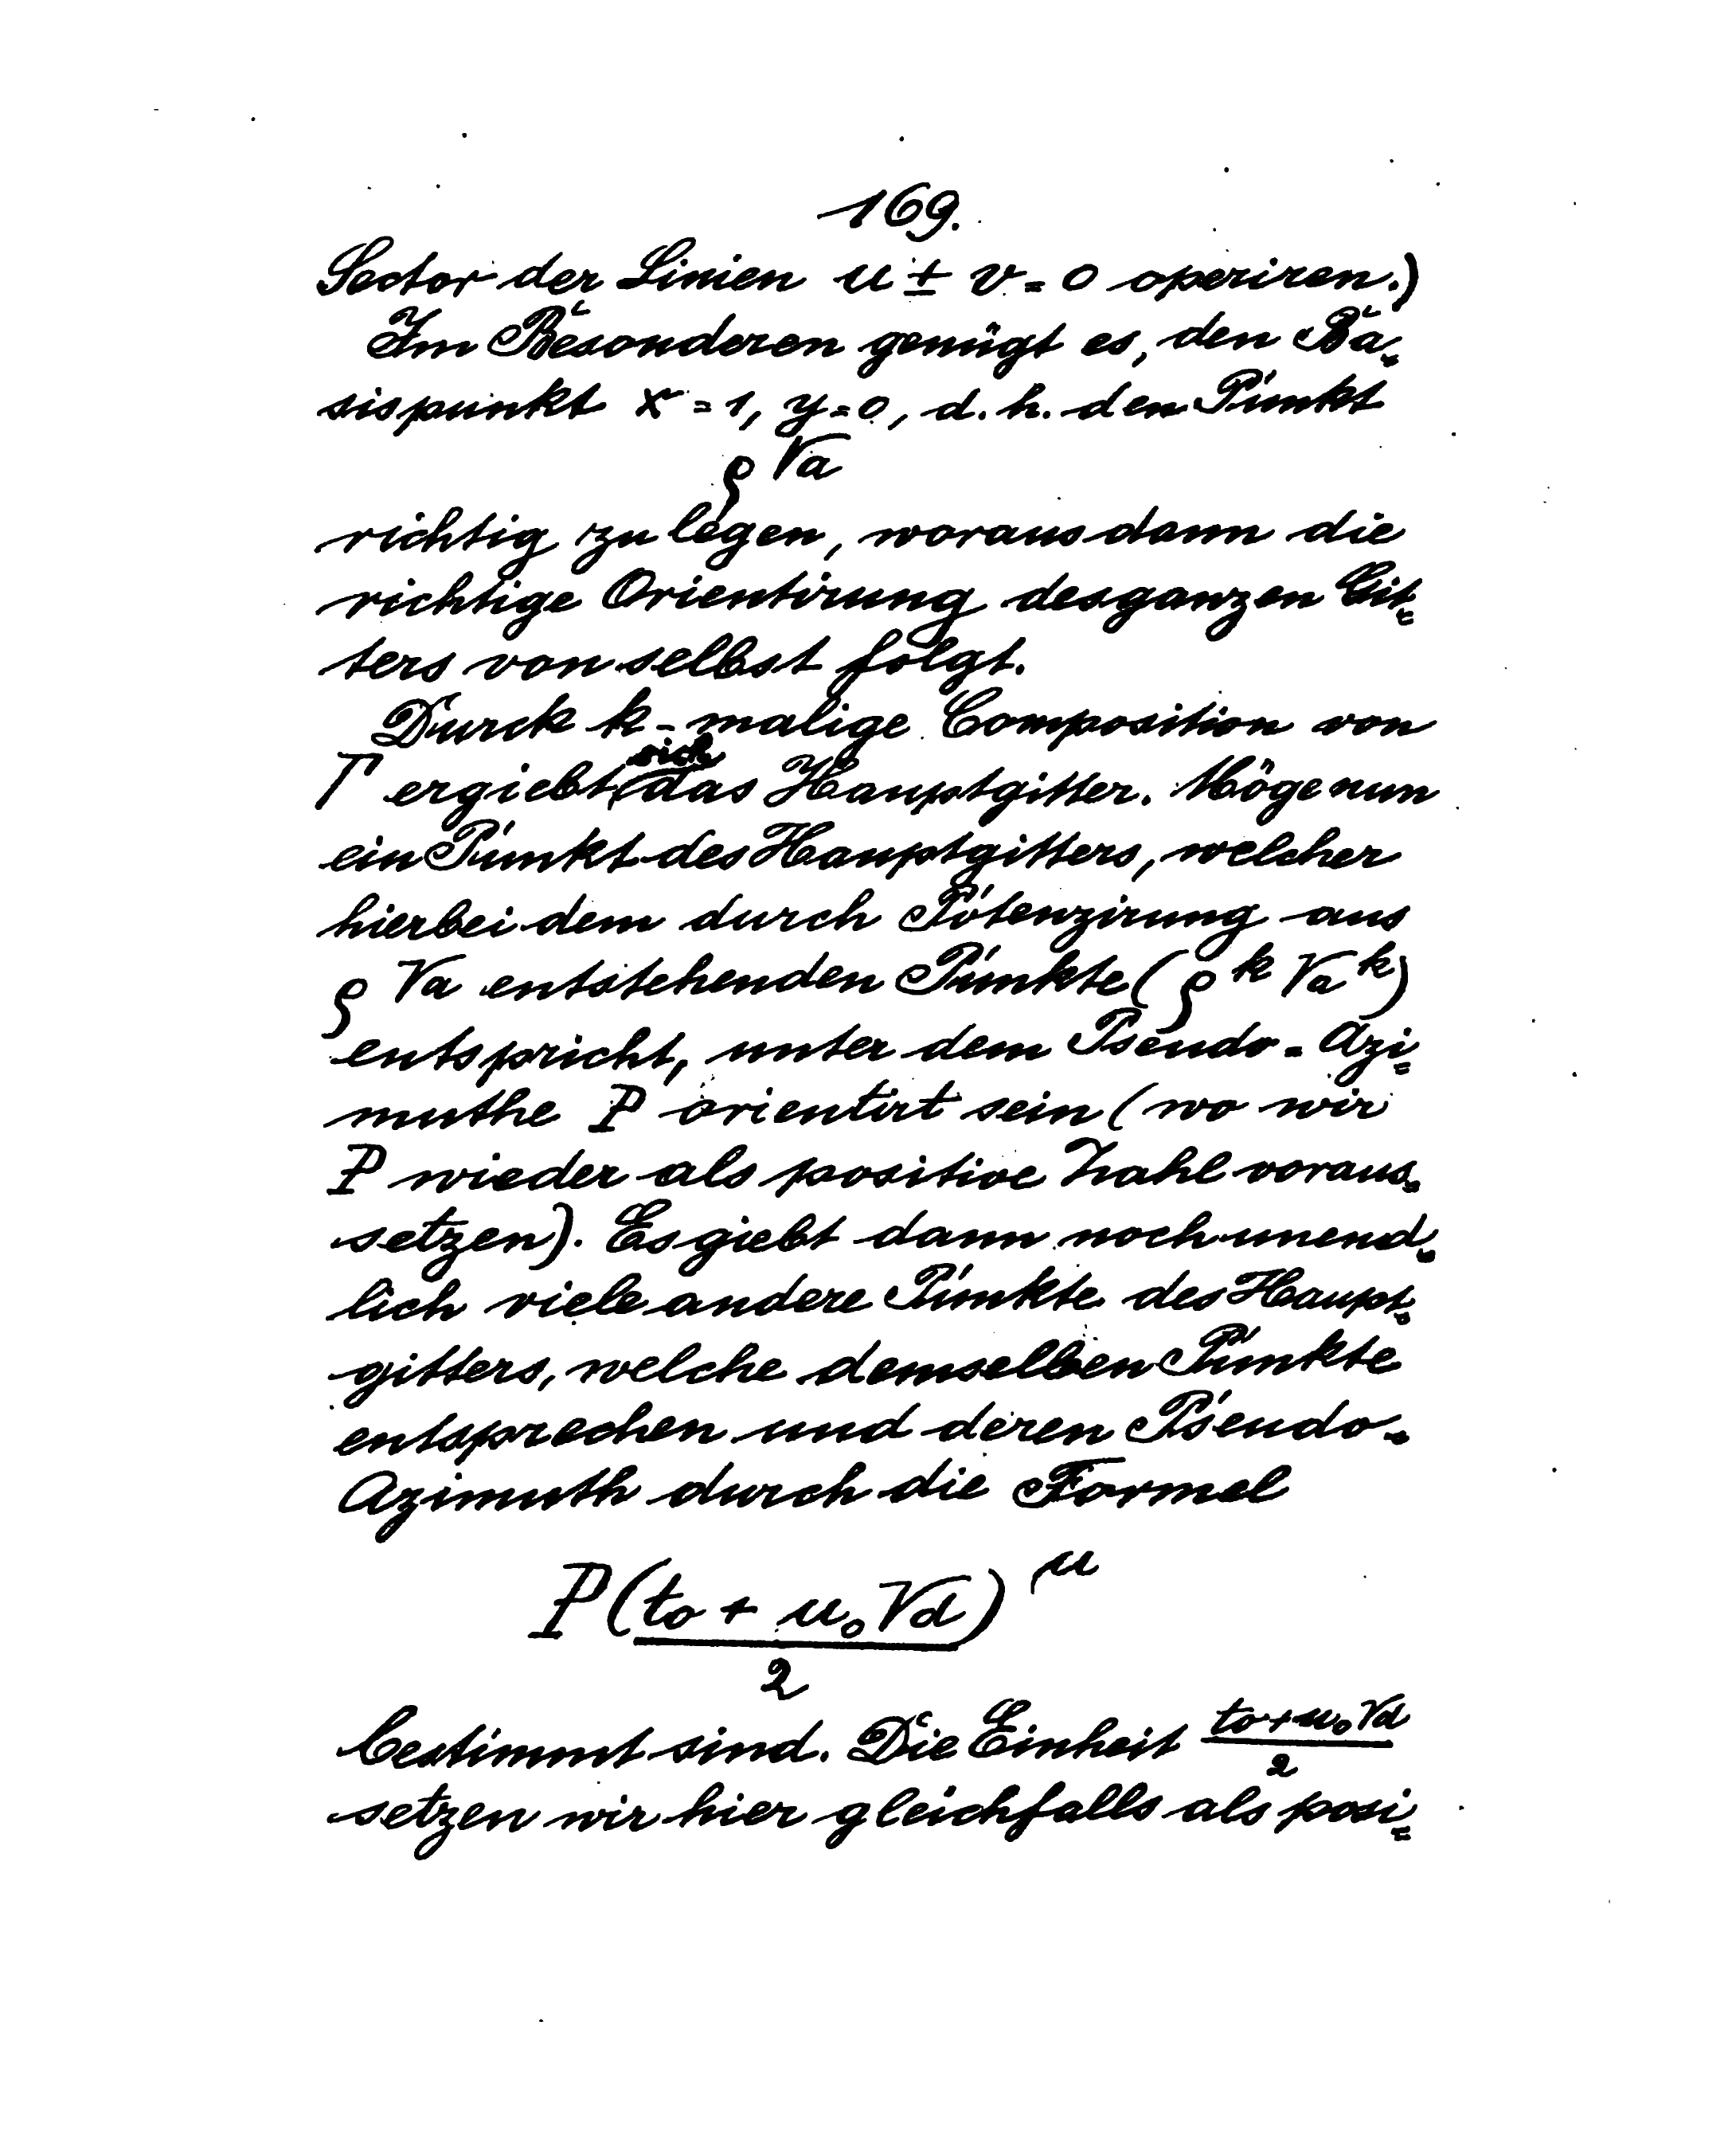 169.
Sector der Linien u ± v = 0 operiren.)
Im Besonderen genügt es, den Ba=
sispunkt x = 1, y = 0, d. h. den Punkt
ϱ √a
richtig zu legen, woraus dann die
richtige Orientirung des ganzen Git=
ters von selbst folgt.
Durch k-malige Composition von
Γ ergiebt sich das Hauptgitter. Möge nun
ein Punkt des Hauptgitters, welcher
hierbei dem durch Potenzirung aus
ϱ √a entstehenden Punkte (ϱ^k √a^k)
entspricht, unter dem Pseudo=Azi=
muthe P orientirt sein (wo wir
P wieder als positive Zahl voraus=
setzen). Es giebt dann noch unend=
lich viele andere Punkte des Haupt=
gitters, welche demselben Punkte
entsprechen und deren Pseudo=
Azimuth durch die Formel
P((t₀ + u₀ √d)/2)^μ
bestimmt sind. Die Einheit (t₀ + u₀ √d)/2
setzen wir hier gleichfalls als posi=